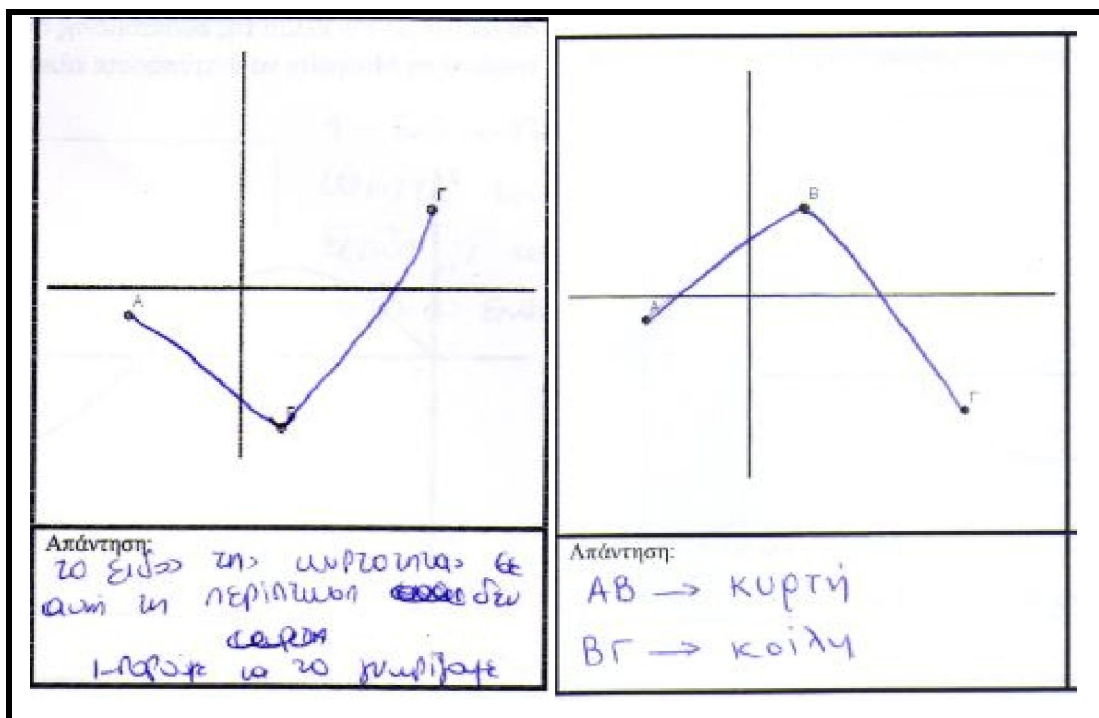 Γ
A
B
Απάντηση:
το είδος της κυρτότητας σε
αυτή τη περίπτωση δεν
μπορούμε να το γνωρίζουμε
B
A
Γ
Απάντηση:
ΑΒ → κυρτή
ΒΓ → κοίλη